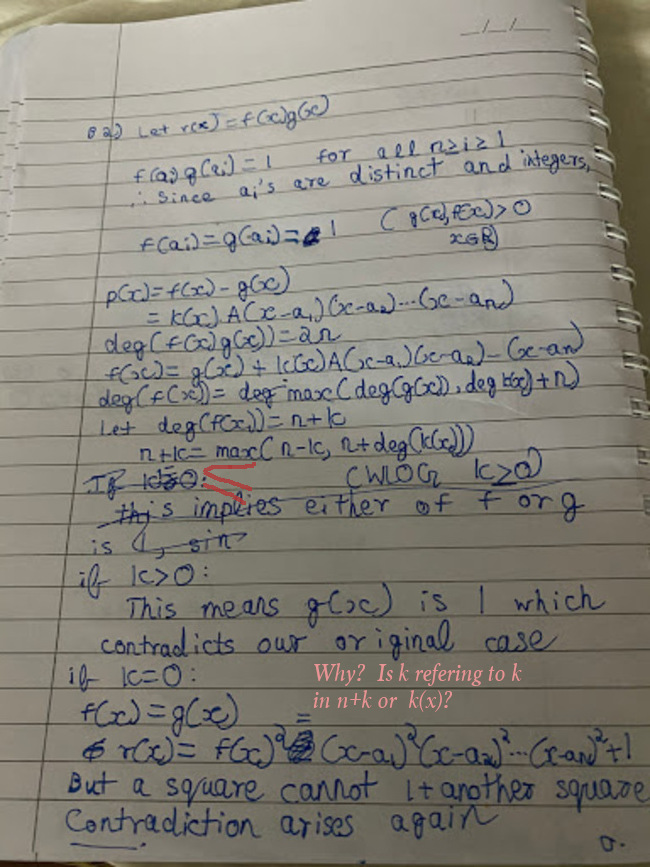 __/__/__
Q2) Let r(x) = f(x)g(x)
f(ai) g(ai) = 1 for all n≥i≥1
∴ Since ai's are distinct and integers,
f(ai) = g(ai) = 1 ( g(x), f(x) > 0
x∈R)
p(x) = f(x) - g(x)
= k(x) A(x-a1)(x-a2)...(x-an)
deg(f(x)g(x)) = 2n
f(x) = g(x) + k(x)A(x-a1)(x-a2)-(x-an)
deg(f(x)) = deg max(deg(g(x)), deg k(x)+n)
Let deg(f(x)) = n+k
n+k = max(n-k, n+deg(k(x)))
If k=0: (WLOG k≥0)
this implies either of f or g
is 1, sin
if k>0:
This means g(x) is 1 which
contradicts our original case
if k=0: Why? Is k refering to k
in n+k or k(x)?
f(x) = g(x)
r(x) = f(x)² = (x-a1)²(x-a2)²...(x-an)²+1
But a square cannot 1+another square
Contradiction arises again